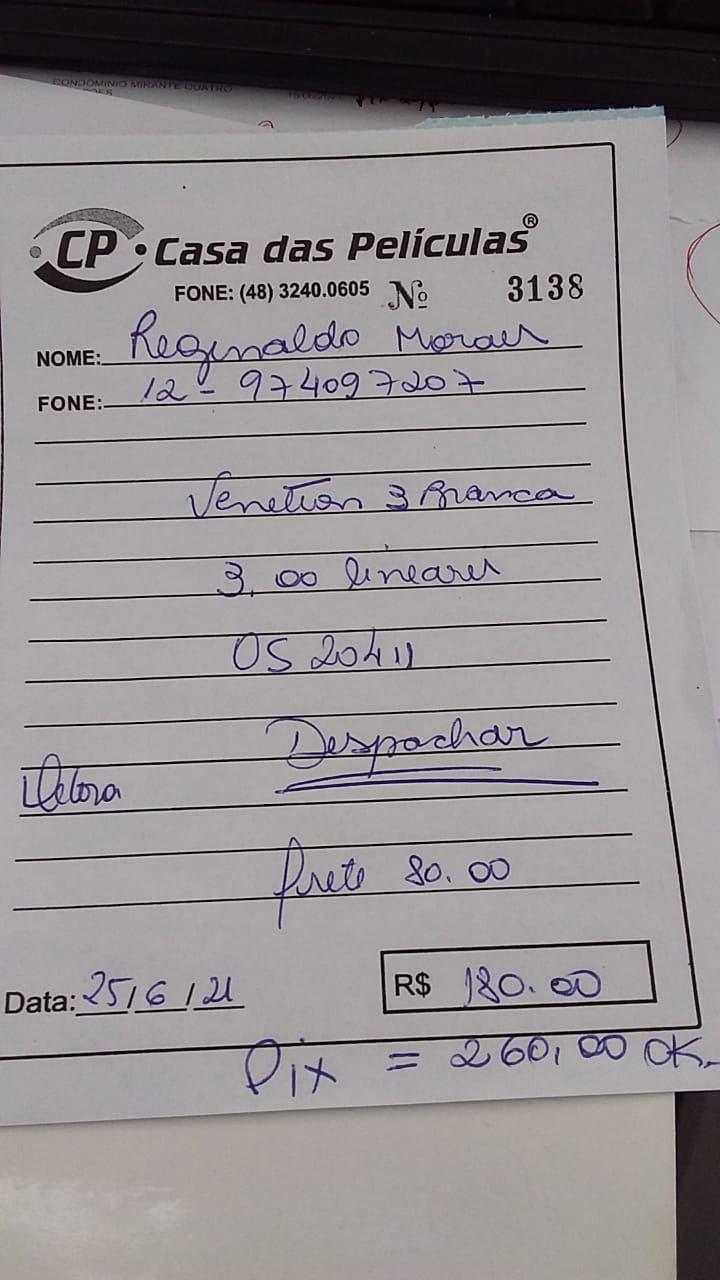 CONDOMINIO MIRANTE QUATRO
CP • Casa das Películas®
FONE: (48) 3240.0605 Nº 3138
NOME: Reginaldo Moraes
FONE: 12 - 974097207
Venetian 3 Branca
3,00 lineares
OS 20411
Despachar
Debora
frete 80.00
Data: 25/6/21 R$ 180.00
Pix = 260,00 OK.